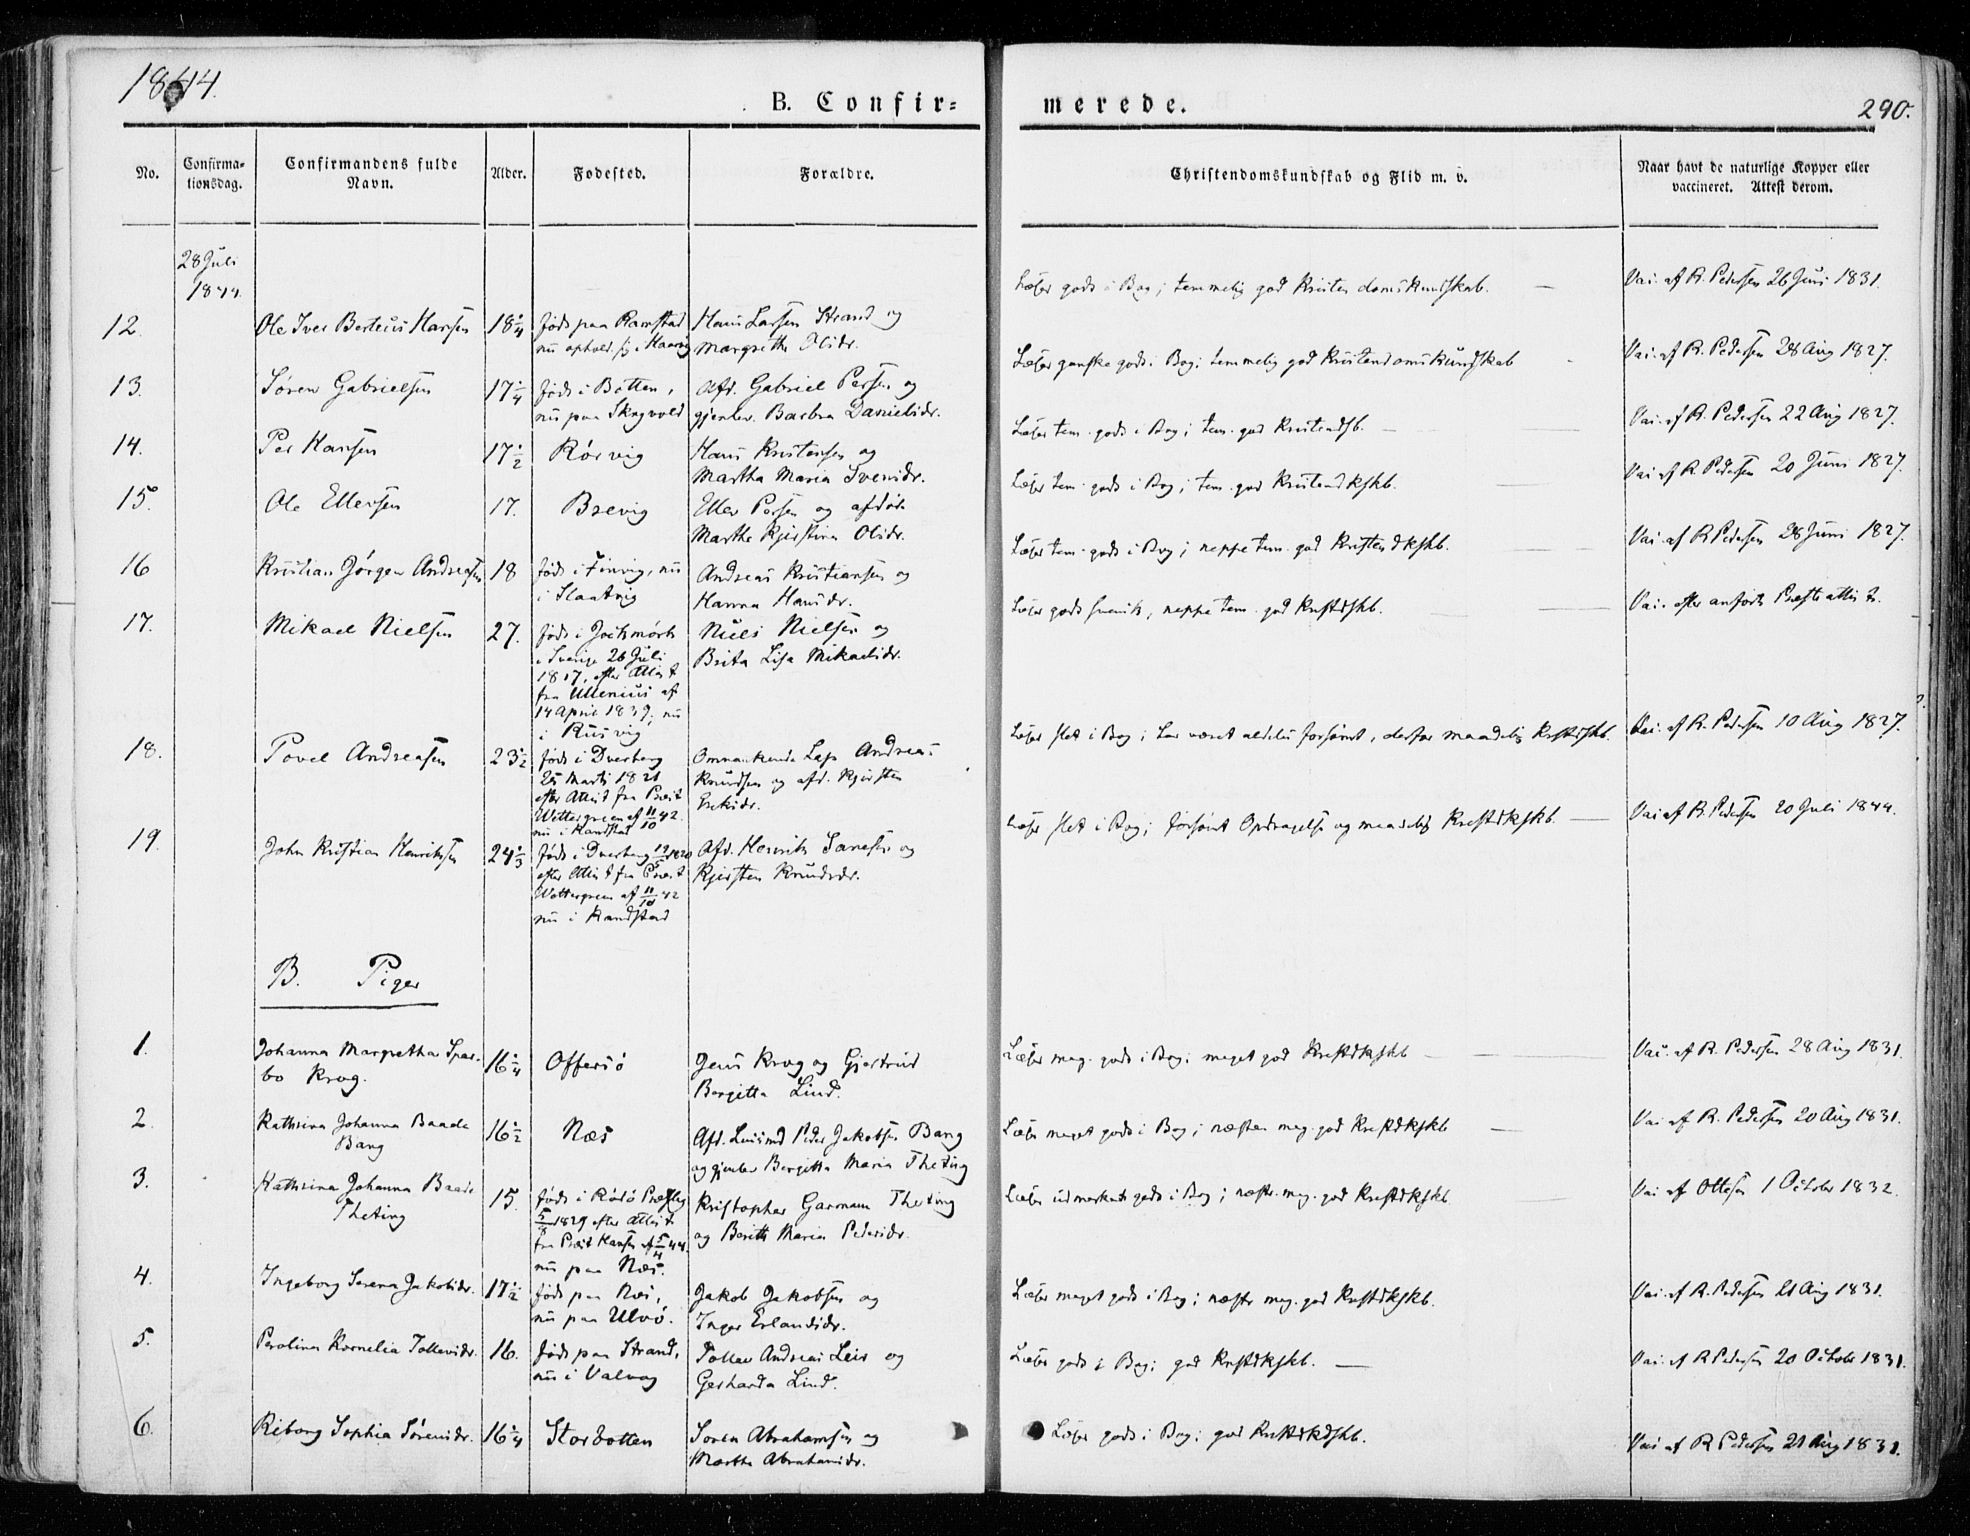 1844.
B. Confir-
merede.
290.
No.
Confirma-
tionsdag.
Confirmandens fulde
Navn.
Alder.
Fødested.
Forældre.
Christendomskundskab og Flid m. v.
Naar havt de naturlige Kopper eller
vaccineret. Attest derom.
28 Juli
1844.
12. Ole Iver Berteus Hansen 18 1/4 født paa Ramstad Hans Larsen Strand og
nu ophold. sig i Haavig Margrethe Olsdr.
Læser godt i Bog; temmelig god Kristendomskundskab. Vac. af R. Pedersen 26 Juni 1831.
13. Søren Gabrielsen 17 1/4 født i Botten, Afd. Gabriel Persen og
nu paa Skogvold gjenlev. Barbra Danielsdr.
Læser ganske godt i Bog; temmelig god Kristendomskundskab Vac. af R. Pedersen 28 Aug 1827.
14. Per Hansen 17 1/2 Rørvig Hans Kristensen og
Martha Maria Svensdr.
Læser tem. godt i Bog; tem. god Kristendsk. Vac. af R. Pedersen 22 Aug 1827.
15. Ole Ellersen 17. Brevig Eller Persen og afdøde
Marthe Kjerstina Olsdr.
Læser tem. godt i Bog; tem. god Kristendkskb. Vac. af R. Pedersen 20 Juni 1827.
16 Kristian Jørgen Andreasen 18 født i Finvig, nu Andreas Kristiansen og
i Slaatvig Hanna Hansdr.
Læser tem. godt i Bog; neppe tem. god Kristendkskb. Vac. af R Pedersen 28 Juni 1827.
17. Mikael Nielsen 27. født i Jockmock Niels Nielsen og
i Sverige 26 Juli Brita Lisa Mikaelsdr.
1817, efter Attest
fra Ullenius af
14 April 1839; nu
i Rusvig
Læser godt svensk, neppe tem. god Kristdskb. Vac. efter anførte Præsteattest.
18. Povel Andreasen 23 1/2 født i Dverberg Omvankende Lap Andreas
25 Marts 1821 Knudsen og afd. Kjersten
efter Attest fra Præst
Wettergreen af 11/10 42.
nu i Kandstad
Læser slet i Bog; har været aldeles forsømt, derfor maadelig Kristdskb. Vac. af R. Pedersen 10 Aug 1827.
19. John Kristian Henriksen 24 1/3 født i Dverberg 1820 Afd. Henrik Larsen og
efter Attest fra Præst Kjersten Knudsdr.
Wettergreen af 11/10 42
nu i Kandstad
Læser slet i Bog; forsømt Opdragelse og maadelig Kristdkskb. Vac af R. Pedersen 20 Juli 1844.
B. Piger
1. Johanna Margretha Spar- 16 1/4 Offersø Jens Krog og Gjertrud
bo Krog. Bergitta Lind.
Læser meg. godt i Bog; meget god Kristdkskb Vac. af R. Pedersen 28 Aug 1831.
2. Kathrina Johanna Baade 16 1/2 Næs Afd. Peder Jakobsen Bang
Bang og gjenlev Bergitta Maria Theting
Læser meget godt i Bog; næsten meg. god Kristdkskb Vac af R. Pedersen 20 Aug 1831.
3. Kathrina Johanna Baade 15. født i Rødø Præstegj Kristopher Garmann Theting
Theting 1829 efter Attest og Berith Maria Pedersdr.
fra Præst Hansen af 5/4 44.
nu paa Næs.
Læser udmærket godt i Bog; næst. meg. god Kristdkskb Vac af Ottesen 1 October 1832.
4. Ingeborg Serena Jakobsdr. 17 1/2 født paa Næs, Jakob Jakobsen og
nu paa Ulvø. Inger Erlandsdr.
Læser meget godt i Bog; næsten meg. god Kristdkskb. Vac. af R. Pedersen 21 Aug 1831.
5. Perolina Kornelia Tollevsdr. 16. født paa Strand, Tollev Andreas Leis og
nu i Valvag Gerharda Lind.
Læser godt i Bog; god Kristdkskb. Vac. af R Pedersen 20 October 1831.
6. Reborg Sophia Sørensdr. 16 1/4 Storbotten Søren Abrahamsen og
Martha Abrahamsdr.
Læser godt i Bog; god Kristdkdskb. Vac af R Pedersen 21 Aug 1831.